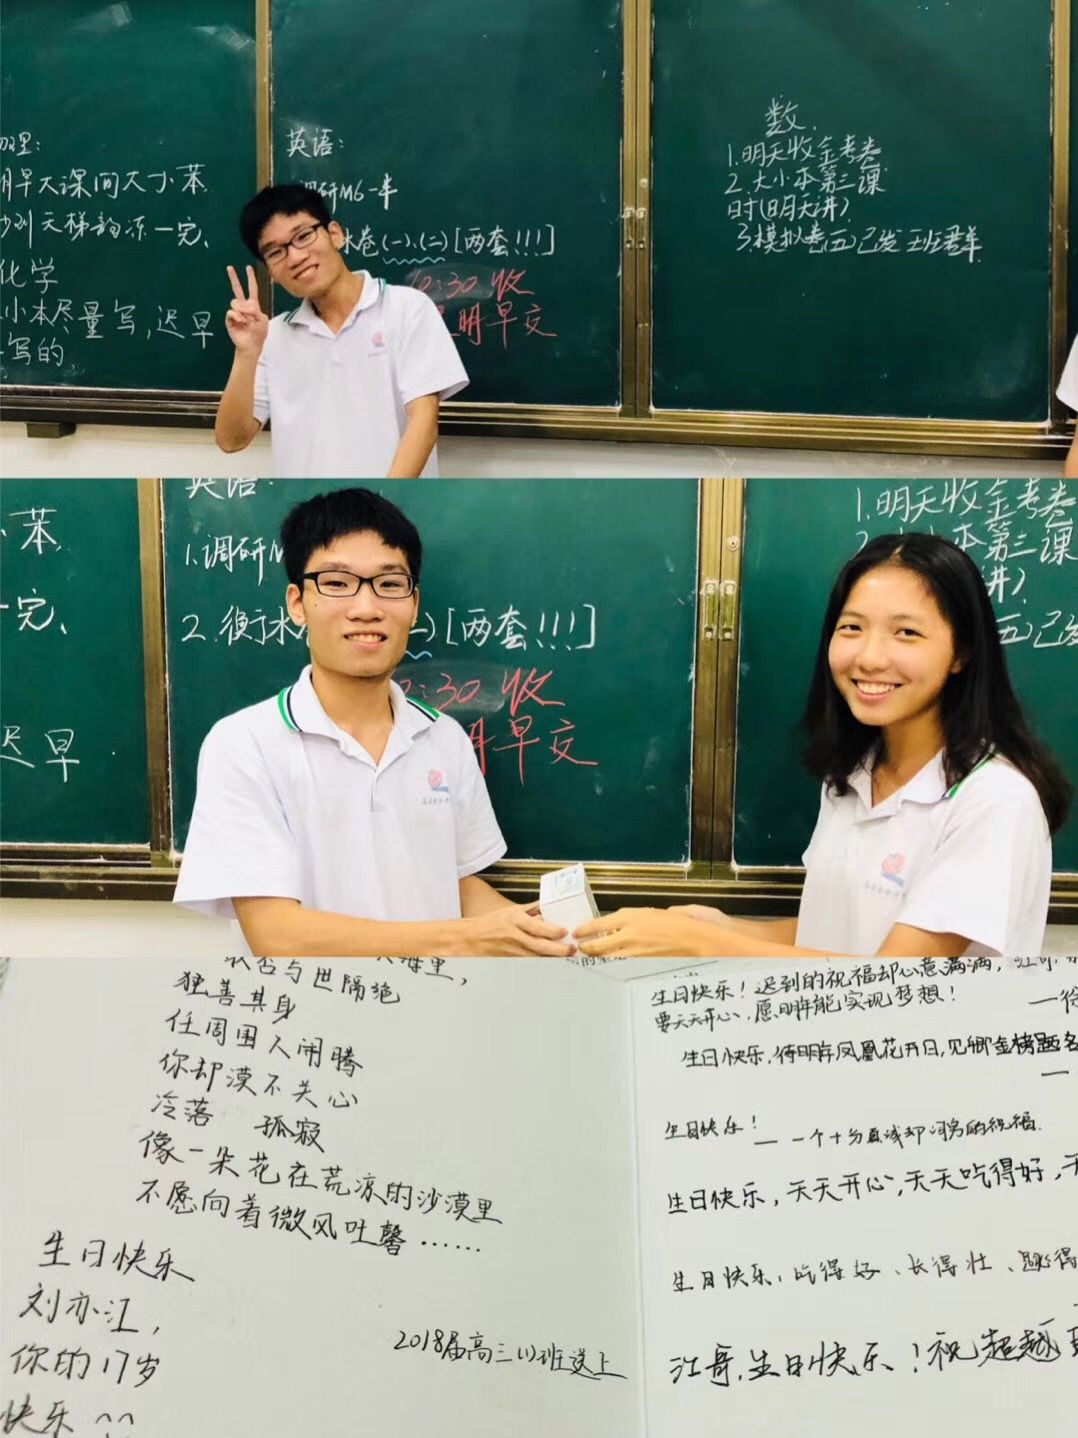 明早大课间大小苯
天梯韵冻一完、
化学
小本尽量写,迟早
写的
英语:
调研M6一半
水卷(一)、(二)[两套!!!]
:30收
明早交
数.
1.明天收金考卷
2.大小本第三课
时(明天讲)
3.模拟卷(五)已发班群
苯
一完、
迟早
英语:
1.调研
2.衡水
)[两套!!!]
:30收
明早交
1.明天收金考卷
本第三课
讲)
五)已发
与世隔绝
独善其身
任周围人闹腾
你却漠不关心
冷落 孤寂
像一朵花在荒凉的沙漠里
不愿向着微风吐馨……
生日快乐
刘亦江,
你的17岁
快乐^^
2018届高三(1)班送上
生日快乐!迟到的祝福却心意满满,
要天天开心,愿明年能实现梦想!
生日快乐,待明年凤凰花开日,见卿金榜题名
生日快乐!
— 一个十分真诚却词穷的祝福.
生日快乐,天天开心,天天吃得好,
生日快乐,吃得好、长得壮、
江哥,生日快乐!祝超越